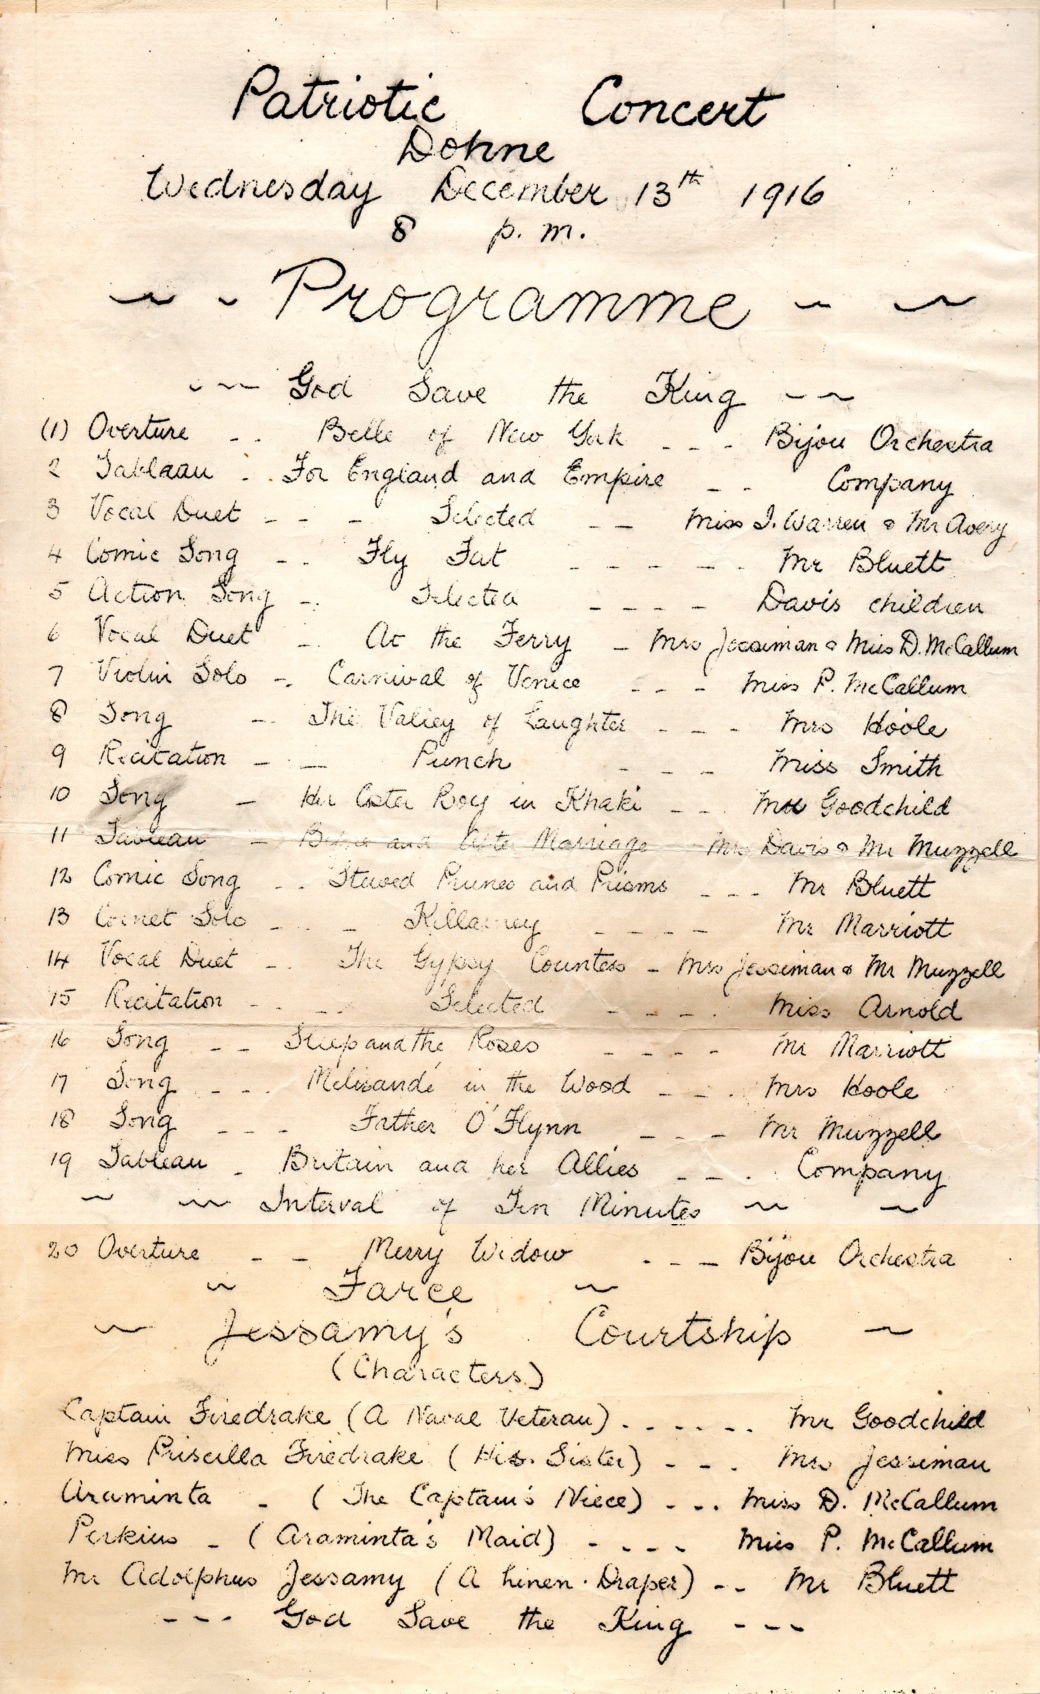 Patriotic Concert
Dohne
Wednesday December 13th 1916
8 p.m.
~ - Programme - ~
- ~ ~ God Save the King ~ ~
(1) Overture - - Belle of New York - - - Bijou Orchestra
2 Tableau - - For England and Empire - - Company
3 Vocal Duet - - - Selected - - Miss I. Warren & Mr Avery
4 Comic Song - - Fly Fat - - - - - Mr Bluett
5 Action Song - - Selected - - - - Davis children
6 Vocal Duet - At the Ferry - Mrs Jessiman & Miss D. McCallum
7 Violin Solo - - Carnival of Venice - - - Miss P. McCallum
8 Song - - The Valley of Laughter - - - Mrs Hoole
9 Recitation - - Punch - - - Miss Smith
10 Song - Her Boy in Khaki - - Goodchild
11 Tableau - Before and After Marriage Davis & Mr Muzzell
12 Comic Song - - Stewed Prunes and Prisms - - - Mr Bluett
13 Cornet Solo - - - Killarney - - - - Mr Marriott
14 Vocal Duet - - The Gypsy Countess - Mrs Jessiman & Mr Muzzell
15 Recitation - - - Selected - - - - Miss Arnold
16 Song - - Sleep and the Roses - - - - Mr Marriott
17 Song - - - Melisandé in the Wood - - - Mrs Hoole
18 Song - - - Father O'Flynn - - - Mr Muzzell
19 Tableau - Britain and her Allies - - - Company
~ ~ Interval of Ten Minutes ~ ~
20 Overture - - Merry Widow - - - Bijou Orchestra
~ Farce ~
~ Jessamy's Courtship ~
(Characters)
Captain Firedrake (A Naval Veteran) - - - - - - Mr Goodchild
Miss Priscilla Firedrake (His Sister) - - - Mrs Jessiman
Araminta - (The Captain's Niece) - - - Miss D. McCallum
Perkins - (Araminta's Maid) - - - - Miss P. McCallum
Mr Adolphus Jessamy (A Linen-Draper) - - Mr Bluett
- - - God Save the King - - -